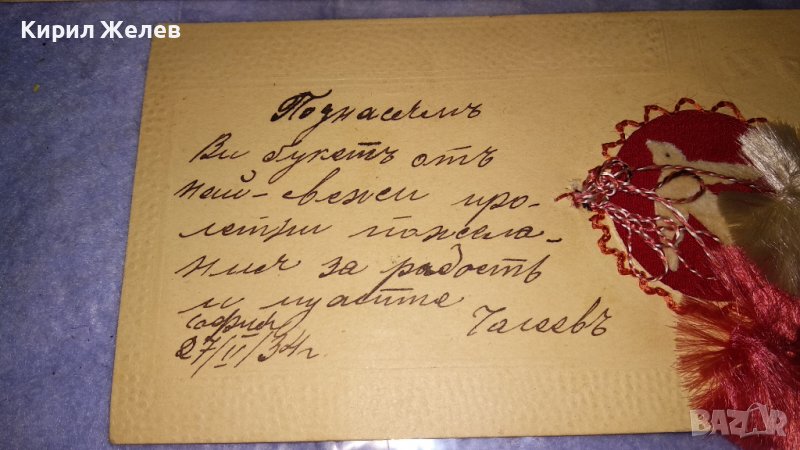 Кирил Желев
Поднасямъ
Ви букетъ отъ
най-свежи про-
летни пожела-
ния за радость
и
София
27/II/34 г.
BAZAR